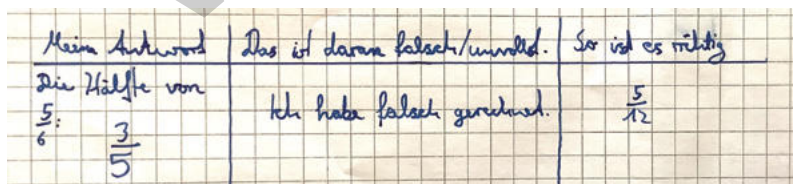 Meine Antwort | Das ist daran falsch/unvollst. | So ist es richtig
Die Hälfte von
5/6: 3/5 | Ich habe falsch gerechnet. | 5/12